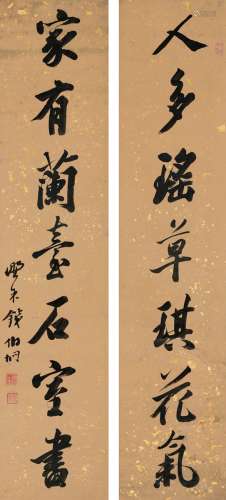 人多瑤草琪花氣
家有蘭臺石室書
魯斯錢伯坰